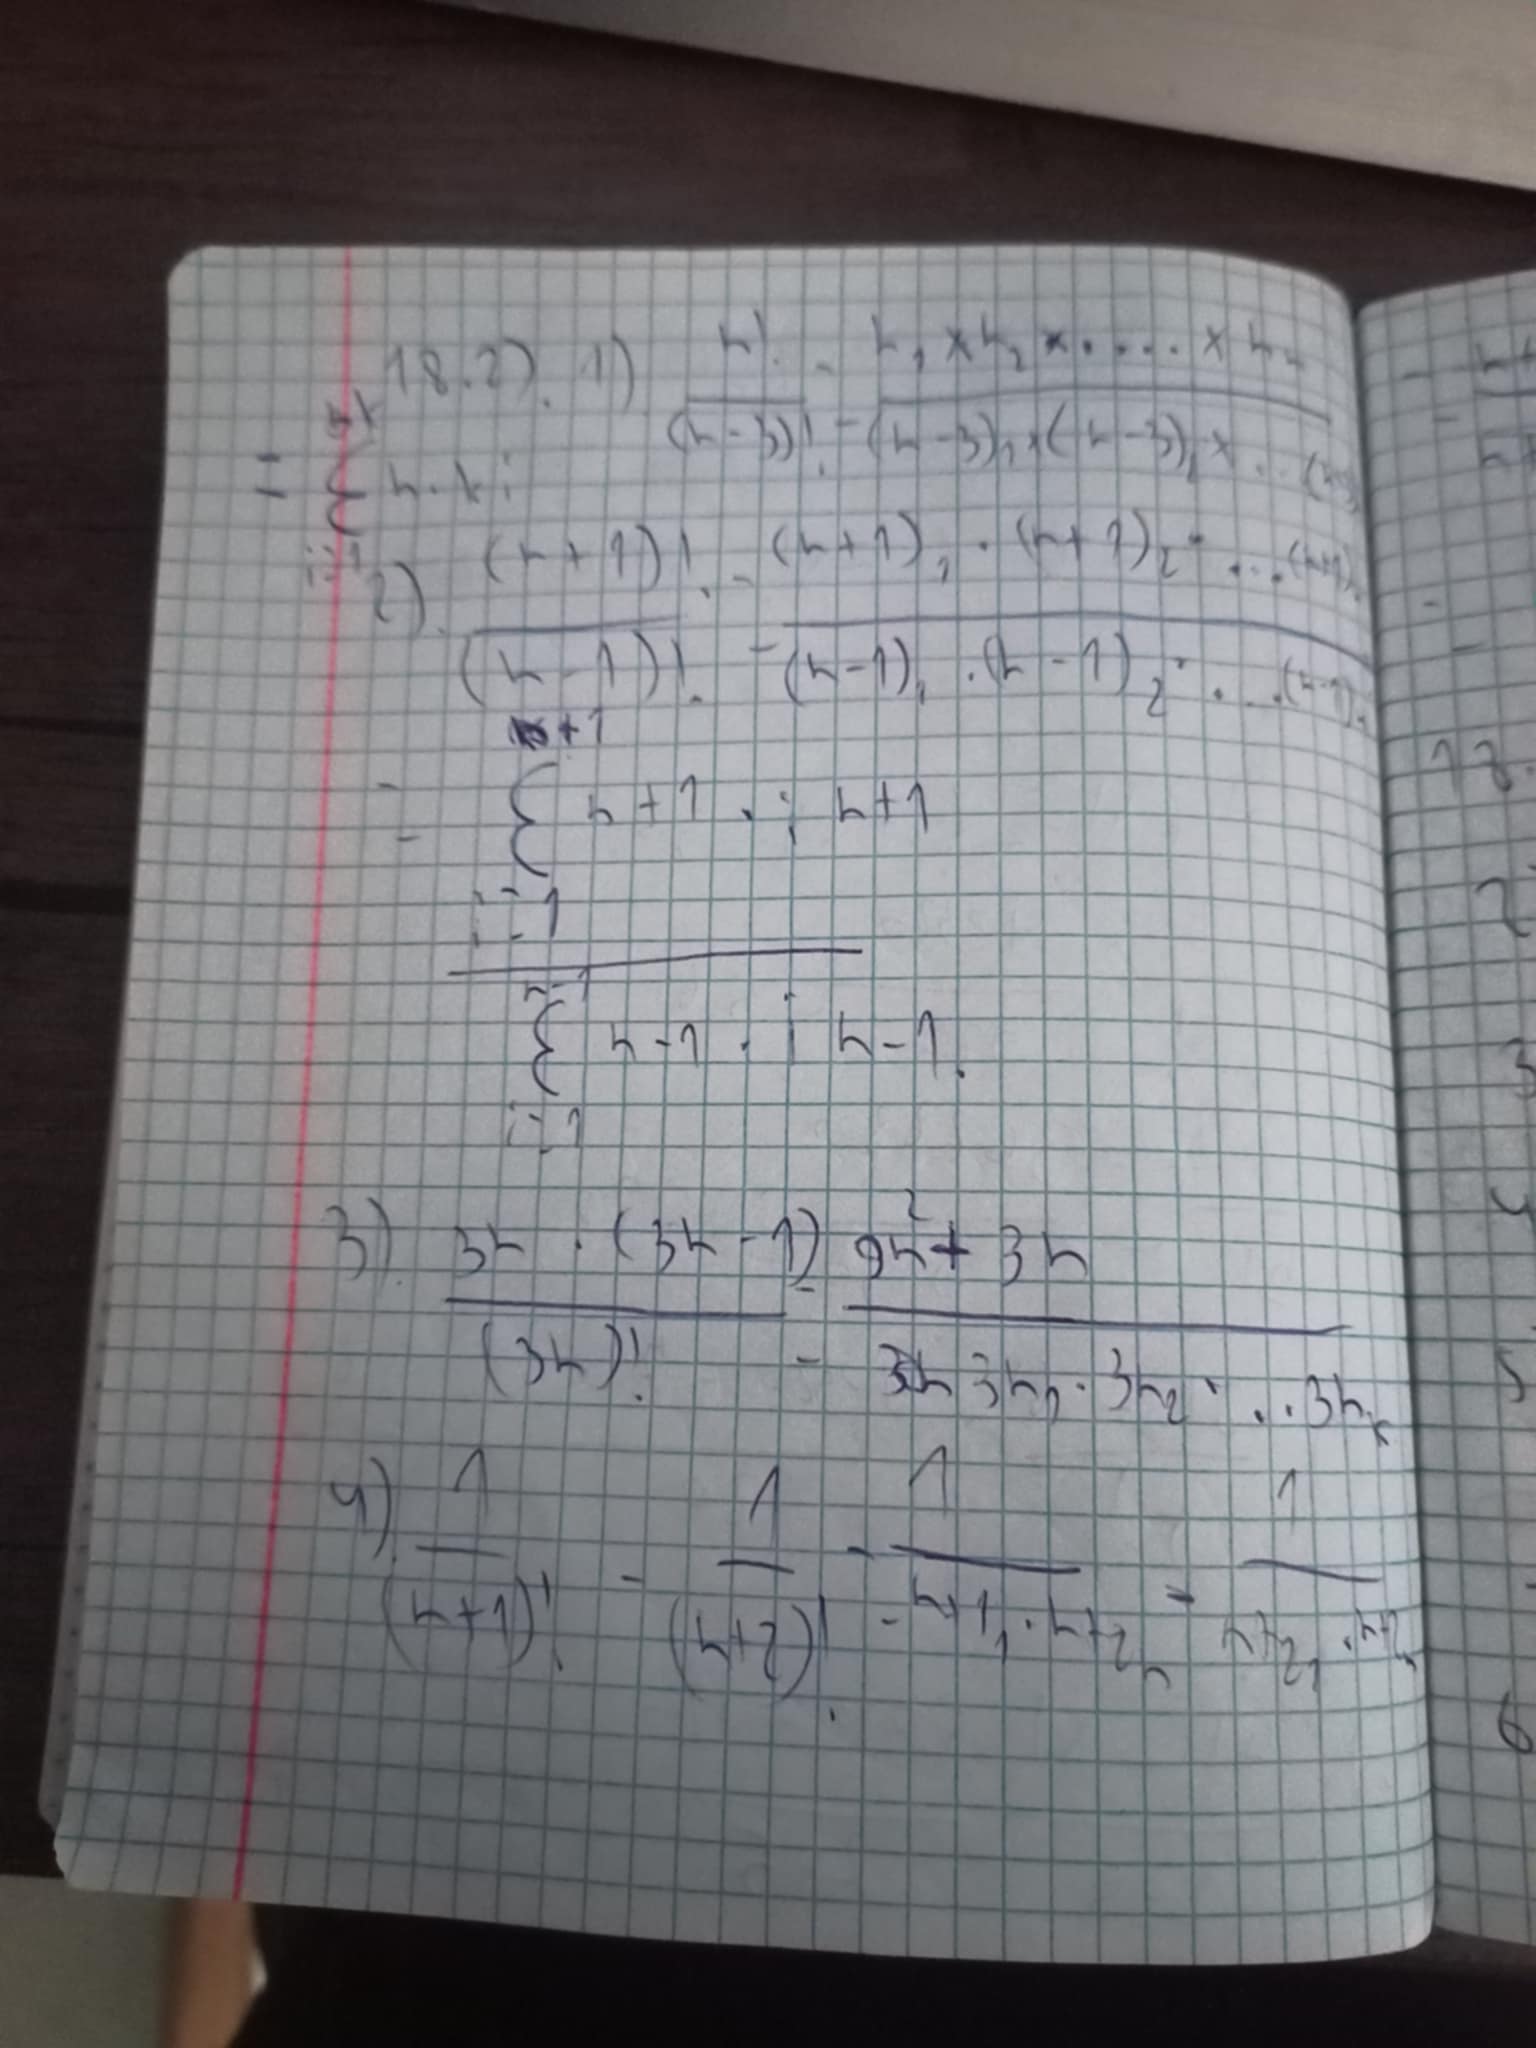 18.2). 1) n! / (n-3)! = n₁ × n₂ × .... × nₙ / (n-3)₁ × (n-3)₂ × ...
= Σ n · k i
i=1
2). (n+1)! / (n-1)! = (n+1)₁ · (n+1)₂ · ... (n+1) / (n-1)₁ · (n-1)₂ · ... (n-1)
=
n+1
Σ n+1 · i n+1
i=1
n-1
Σ n-1 · i n-1.
i=1
3). 3n · (3n-1) / (3n)! = 9n² + 3n / 3n₁ · 3n₂ · ..3nₖ
4). 1 / (n+1)! - 1 / (n+2)! = 1 / n+1₁ · n+2ₙ - 1 / n+2₁ · n+2ₙ
18.
2
3
4
5
6